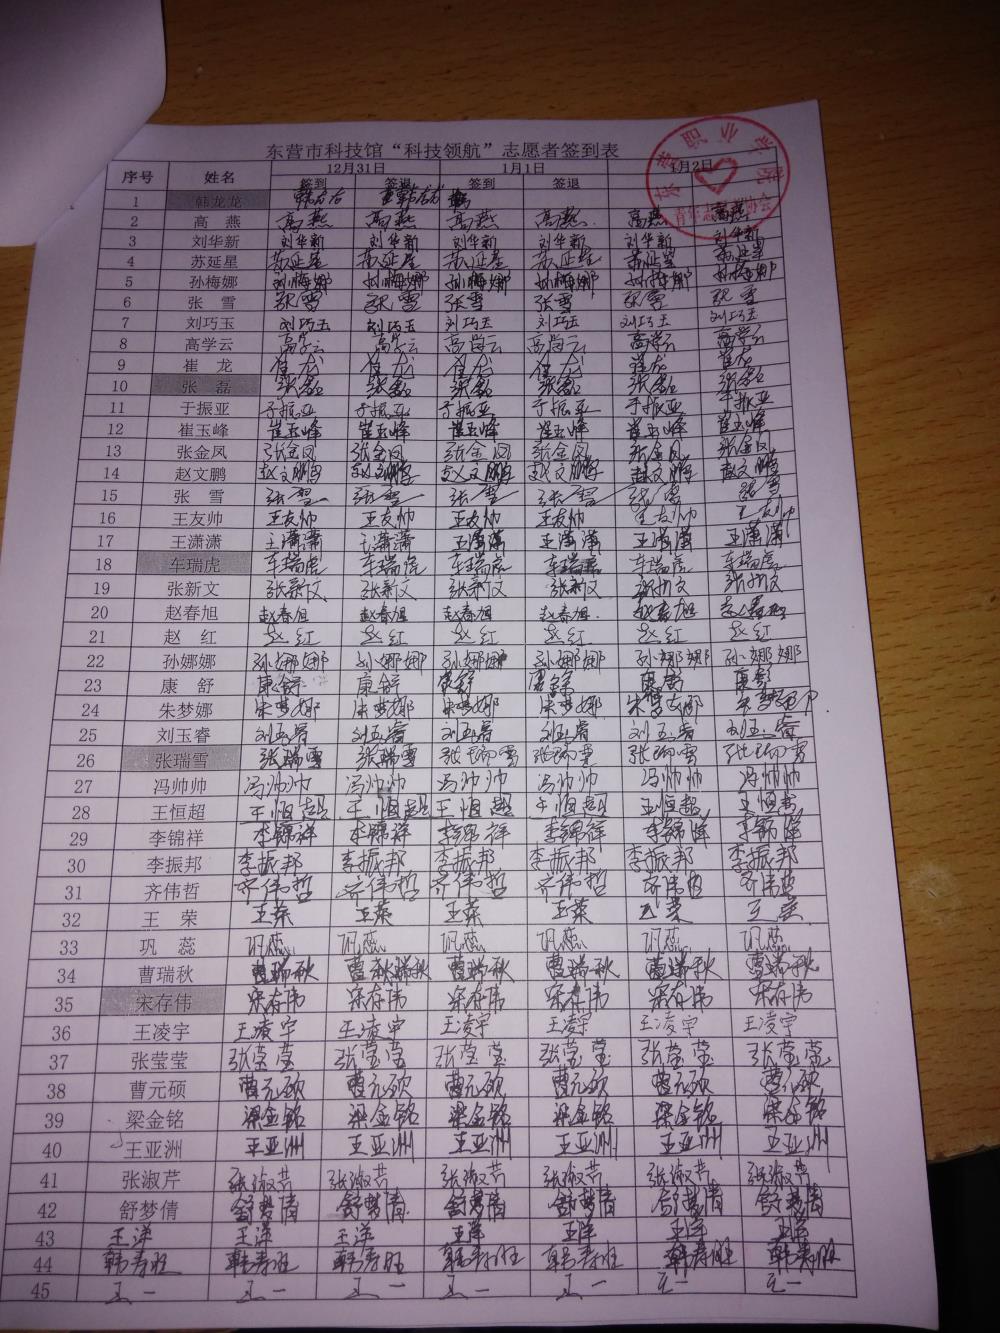 东营市科技馆“科技领航”志愿者签到表
序号 姓名 12月31日 1月1日 1月2日
签到 签退 签到 签退
1 韩龙龙
2 高燕 高燕 高燕 高燕 高燕 高燕 高燕
3 刘华新 刘华新 刘华新 刘华新 刘华新 刘华新 刘华新
4 苏延星 苏延星 苏延星 苏延星 苏延星 苏延星 苏延星
5 孙梅娜 孙梅娜 孙梅娜 孙梅娜 孙梅娜 孙梅娜 孙梅娜
6 张雪 张雪 张雪 张雪 张雪 张雪 张雪
7 刘巧玉 刘巧玉 刘巧玉 刘巧玉 刘巧玉 刘巧玉 刘巧玉
8 高学云 高学云 高学云 高学云 高学云 高学云 高学云
9 崔龙 崔龙 崔龙 崔龙 崔龙 崔龙 崔龙
10 张磊 张磊 张磊 张磊 张磊 张磊 张磊
11 于振亚 于振亚 于振亚 于振亚 于振亚 于振亚 于振亚
12 崔玉峰 崔玉峰 崔玉峰 崔玉峰 崔玉峰 崔玉峰 崔玉峰
13 张金凤 张金凤 张金凤 张金凤 张金凤 张金凤 张金凤
14 赵文鹏 赵文鹏 赵文鹏 赵文鹏 赵文鹏 赵文鹏 赵文鹏
15 张雪 张雪 张雪 张雪 张雪 张雪 张雪
16 王友帅 王友帅 王友帅 王友帅 王友帅 王友帅 王友帅
17 王潇潇 王潇潇 王潇潇 王潇潇 王潇潇 王潇潇 王潇潇
18 车瑞虎 车瑞虎 车瑞虎 车瑞虎 车瑞虎 车瑞虎 车瑞虎
19 张新文 张新文 张新文 张新文 张新文 张新文 张新文
20 赵春旭 赵春旭 赵春旭 赵春旭 赵春旭 赵春旭 赵春旭
21 赵红 赵红 赵红 赵红 赵红 赵红 赵红
22 孙娜娜 孙娜娜 孙娜娜 孙娜娜 孙娜娜 孙娜娜 孙娜娜
23 康舒 康舒 康舒 康舒 康舒 康舒 康舒
24 朱梦娜 朱梦娜 朱梦娜 朱梦娜 朱梦娜 朱梦娜
25 刘玉睿 刘玉睿 刘玉睿 刘玉睿 刘玉睿 刘玉睿 刘玉睿
26 张瑞雪 张瑞雪 张瑞雪 张瑞雪 张瑞雪 张瑞雪 张瑞雪
27 冯帅帅 冯帅帅 冯帅帅 冯帅帅 冯帅帅 冯帅帅 冯帅帅
28 王恒超 王恒超 王恒超 王恒超 王恒超 王恒超 王恒超
29 李锦祥 李锦祥 李锦祥 李锦祥 李锦祥 李锦祥 李锦祥
30 李振邦 李振邦 李振邦 李振邦 李振邦 李振邦 李振邦
31 齐伟哲 齐伟哲 齐伟哲 齐伟哲 齐伟哲 齐伟哲 齐伟哲
32 王荣 王荣 王荣 王荣 王荣 王荣 王荣
33 巩蕊 巩蕊 巩蕊 巩蕊 巩蕊 巩蕊 巩蕊
34 曹瑞秋 曹瑞秋 曹秋瑞秋 曹瑞秋 曹瑞秋 曹瑞秋 曹瑞秋
35 宋存伟 宋存伟 宋存伟 宋存伟 宋存伟 宋存伟 宋存伟
36 王凌宇 王凌宇 王凌宇 王凌宇 王凌宇 王凌宇 王凌宇
37 张莹莹 张莹莹 张莹莹 张莹莹 张莹莹 张莹莹 张莹莹
38 曹元硕 曹元硕 曹元硕 曹元硕 曹元硕 曹元硕 曹元硕
39 梁金铭 梁金铭 梁金铭 梁金铭 梁金铭 梁金铭 梁金铭
40 王亚洲 王亚洲 王亚洲 王亚洲 王亚洲 王亚洲 王亚洲
41 张淑芹 张淑芹 张淑芹 张淑芹 张淑芹 张淑芹 张淑芹
42 舒梦倩 舒梦倩 舒梦倩 舒梦倩 舒梦倩 舒梦倩 舒梦倩
43 王洋 王洋 王洋 王洋 王洋 王洋 王洋
44 韩寿旺 韩寿旺 韩寿旺 韩寿旺 韩寿旺 韩寿旺 韩寿旺
45 王一 王一 王一 王一 王一 王一 王一